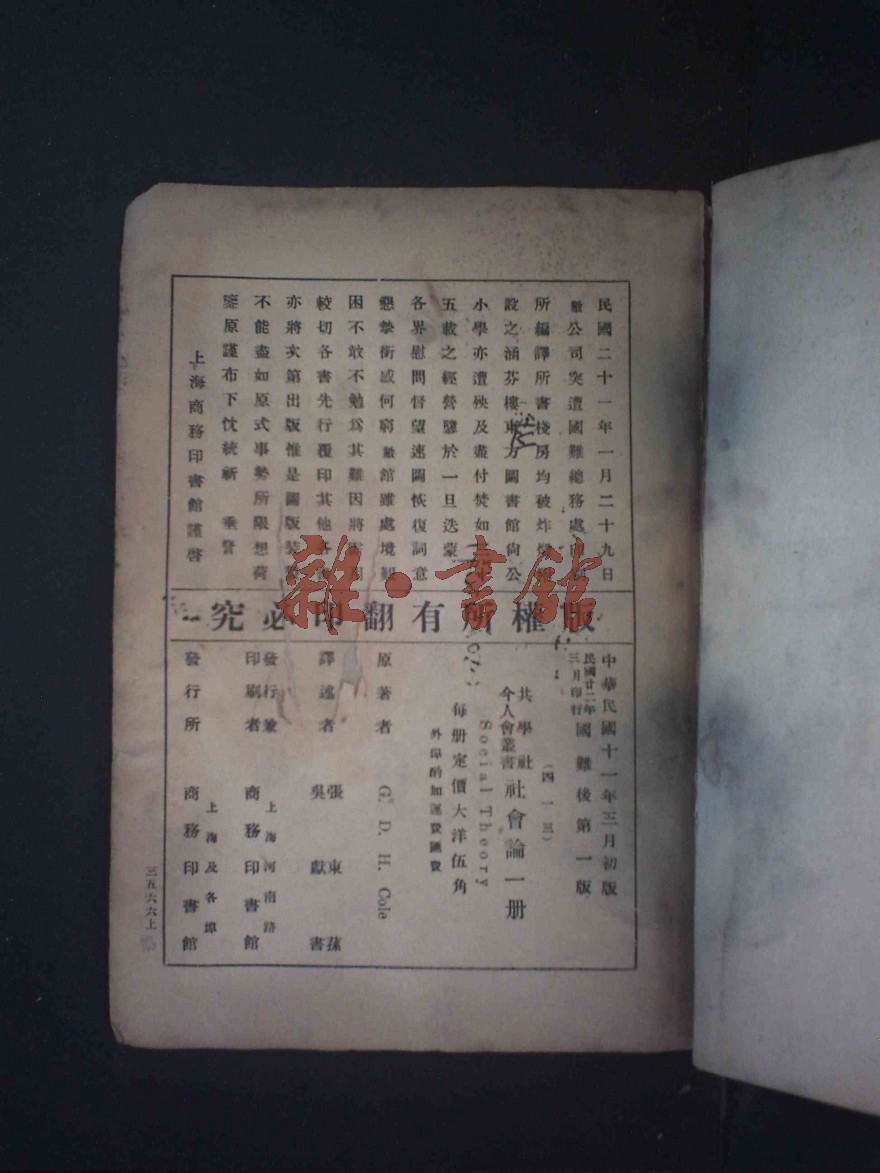 民國二十一年一月二十九日
敝公司突遭國難總務處印刷
所編譯所書棧房均被炸燬附
設之涵芬樓東方圖書館尚公
小學亦遭殃及盡付焚如三十
五載之經營隳於一旦迭蒙
各界慰問督望速圖恢復詞意
懇摯銜感何窮敝館雖處境艱
困不敢不勉爲其難因將需用
較切各書先行覆印其他各書
亦將次第出版惟是圖版裝製
不能盡如原式事勢所限想荷
鑒原謹布下忱統祈 垂詧
上海商務印書館謹啓
版權所有翻印必究
中華民國十一年三月初版
民國廿二年三月印行國難後第一版
(四一三)
共學社今人會叢書社會論一册
Social Theory
每册定價大洋伍角
外埠酌加運費匯費
原著者 G. D. H. Cole
譯述者 張東蓀 吳獻書
發行兼印刷者 上海河南路 商務印書館
發行所 上海及各埠 商務印書館
三五六六上
雜·書館